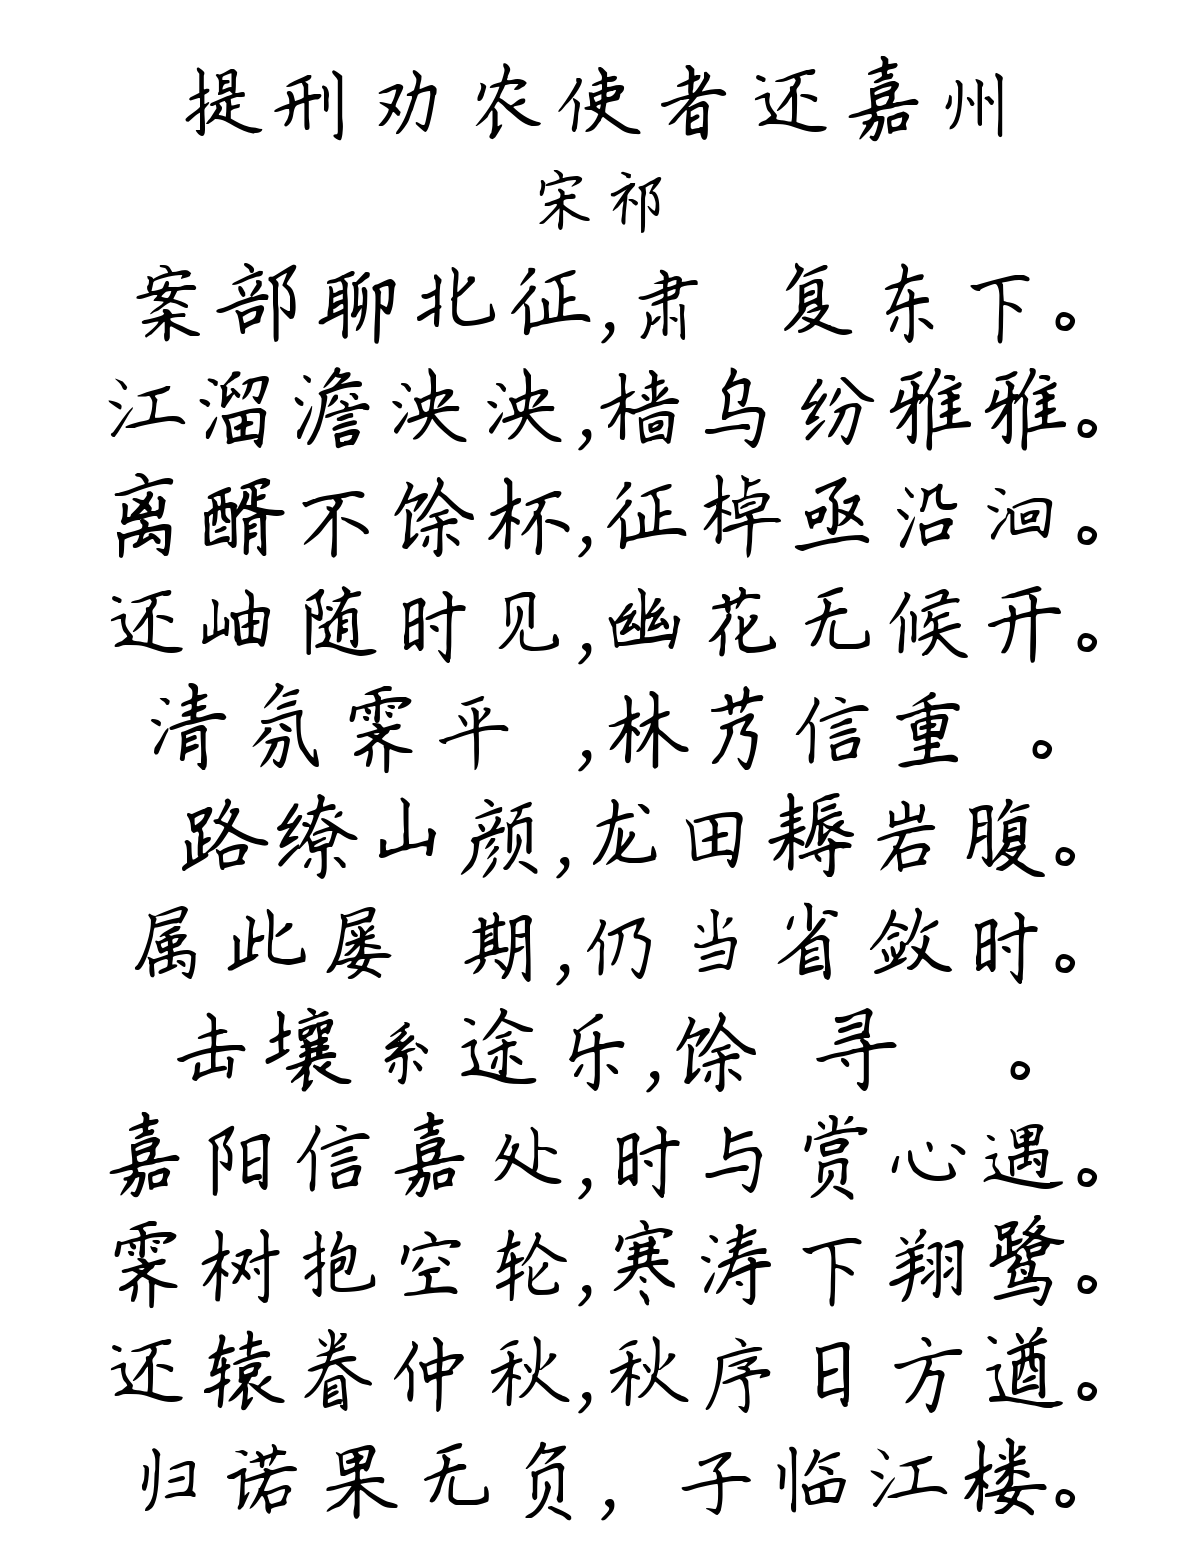 提刑劝农使者还嘉州
宋祁
案部聊北征,肃 复东下。
江溜澹泱泱,樯乌纷雅雅。
离醑不馀杯,征棹亟沿洄。
还岫随时见,幽花无候开。
清氛霁平 ,林艿信重 。
路缭山颜,龙田耨岩腹。
属此屡 期,仍当省敛时。
击壤系途乐,馀 寻 。
嘉阳信嘉处,时与赏心遇。
霁树抱空轮,寒涛下翔鹭。
还辕眷仲秋,秋序日方遒。
归诺果无负, 子临江楼。